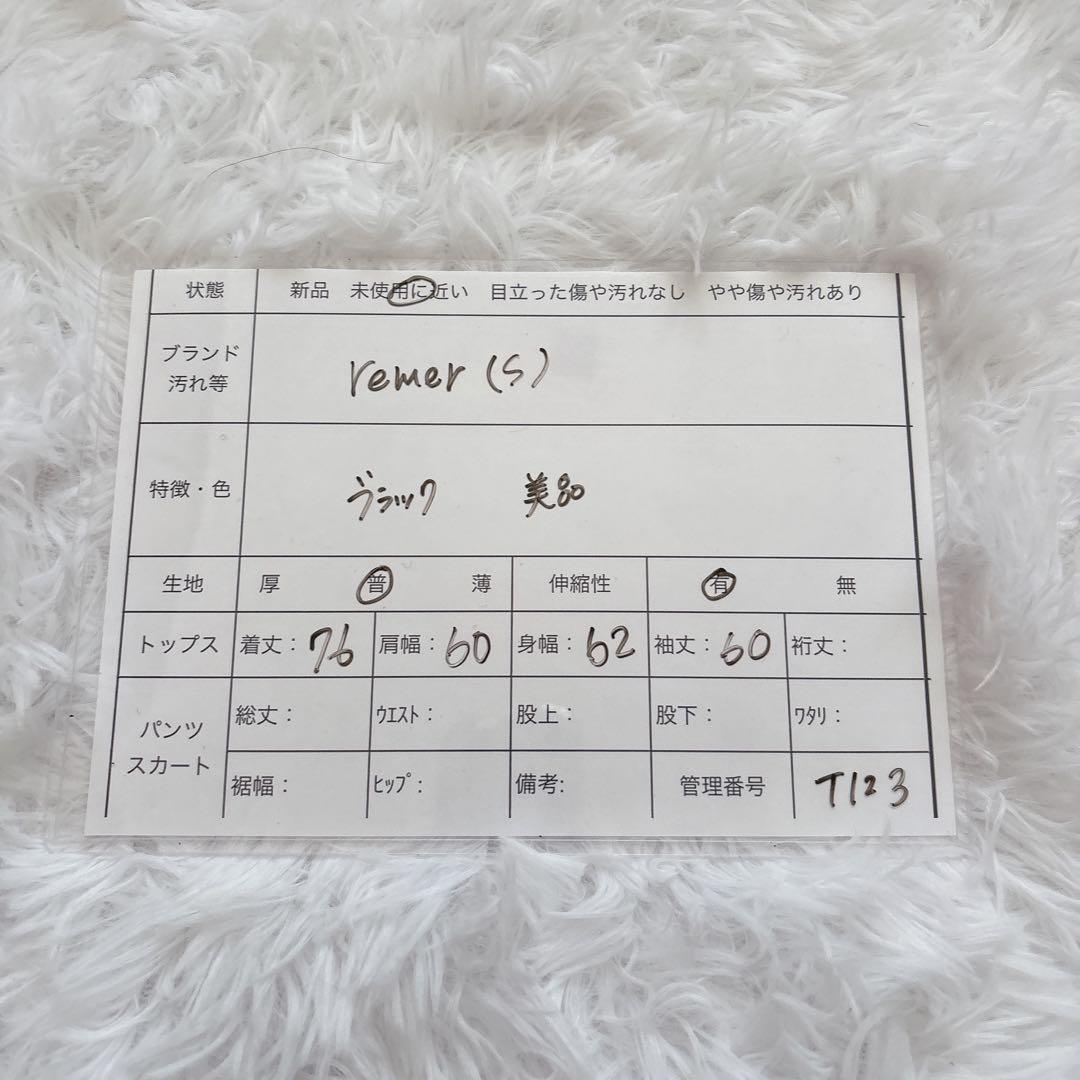 状態 新品 未使用に近い 目立った傷や汚れなし やや傷や汚れあり
ブランド
汚れ等 remer (S)
特徴・色 ブラック 美品
生地 厚 普 薄 伸縮性 有 無
トップス 着丈：76 肩幅：60 身幅：62 袖丈：60 裄丈：
パンツ
スカート
総丈： ｳｴｽﾄ： 股上： 股下： ﾜﾀﾘ：
裾幅： ﾋｯﾌﾟ： 備考: 管理番号 T123